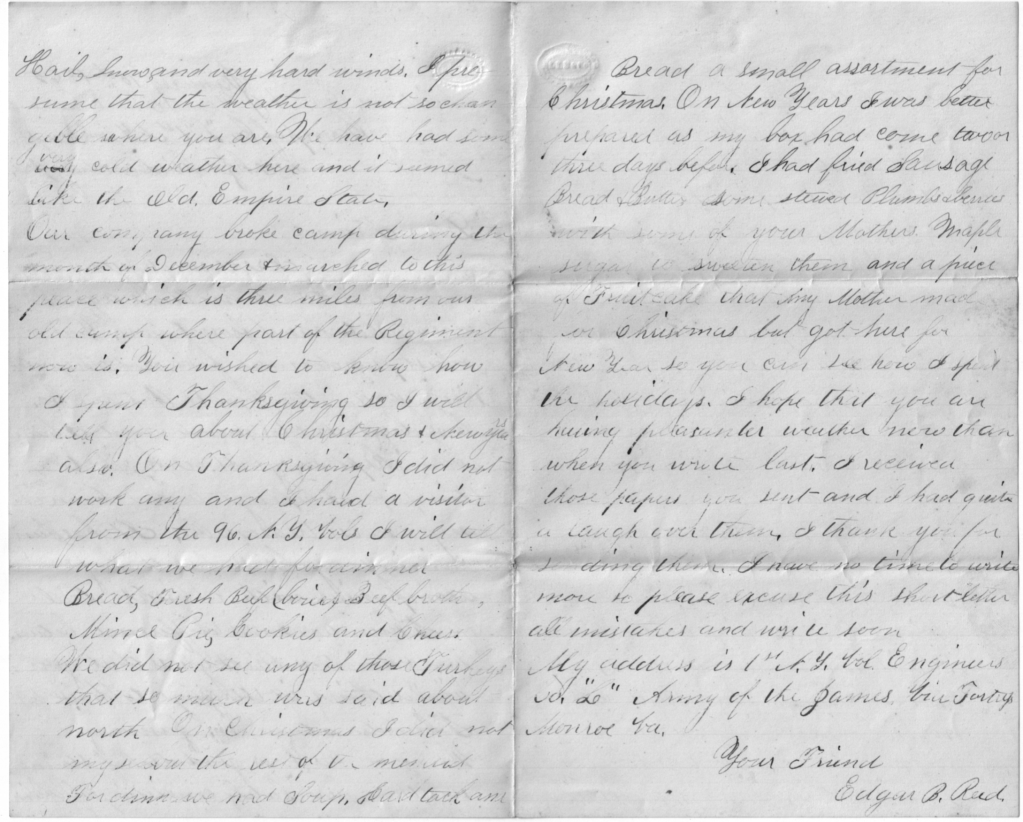 Hail, Snow, and very hard winds. I pre
sume that the weather is not so chan
gible where you are. We have had som
very cold weather here and it semed
like the Old, Empire State.
Our company broke camp during the
month of December & marched to this
peace which is three miles from our
old camp where part of the Regiment
now is. You wished to know how
I spent Thanksgiving so I will
tell you about Christmas & New Years
also. On Thanksgiving I did not
work any and I had a visitor
from the 96. N. Y. Vols I will tell
what we had for dinner
Bread, Fresh Beef (boiled) Beef broth,
Mince Pie, Cookies and
We did not see any of those Turkeys
that so much was said about
north On Christmas I did not
the rest of
For dinn we had Soup, Hard tack and
Bread a small assortment for
Christmas. On New Years I was better
prepared as my box had come two or
three days before. I had fried Sausage
Bread & Butter some stewed Plumbs
with some of your Mothers Maple
sugar to sweeten them and a piece
of Fruit cake that my Mother mad
for Chrisomas but got here for
New Year so you can see how I spent
the holidays. I hope that you are
having pleasanter weather now than
when you wrote last. I received
those papers you sent and I had quite
a laugh over them, I thank you for
sending them. I have no time to write
more so please excuse this short letter
all mistakes and write soon
My address is 1st N. Y. Vol. Engineers
Co. "L" Army of the James. Via Fortress
Monroe Va.
Your Friend
Edgar B. Reed.